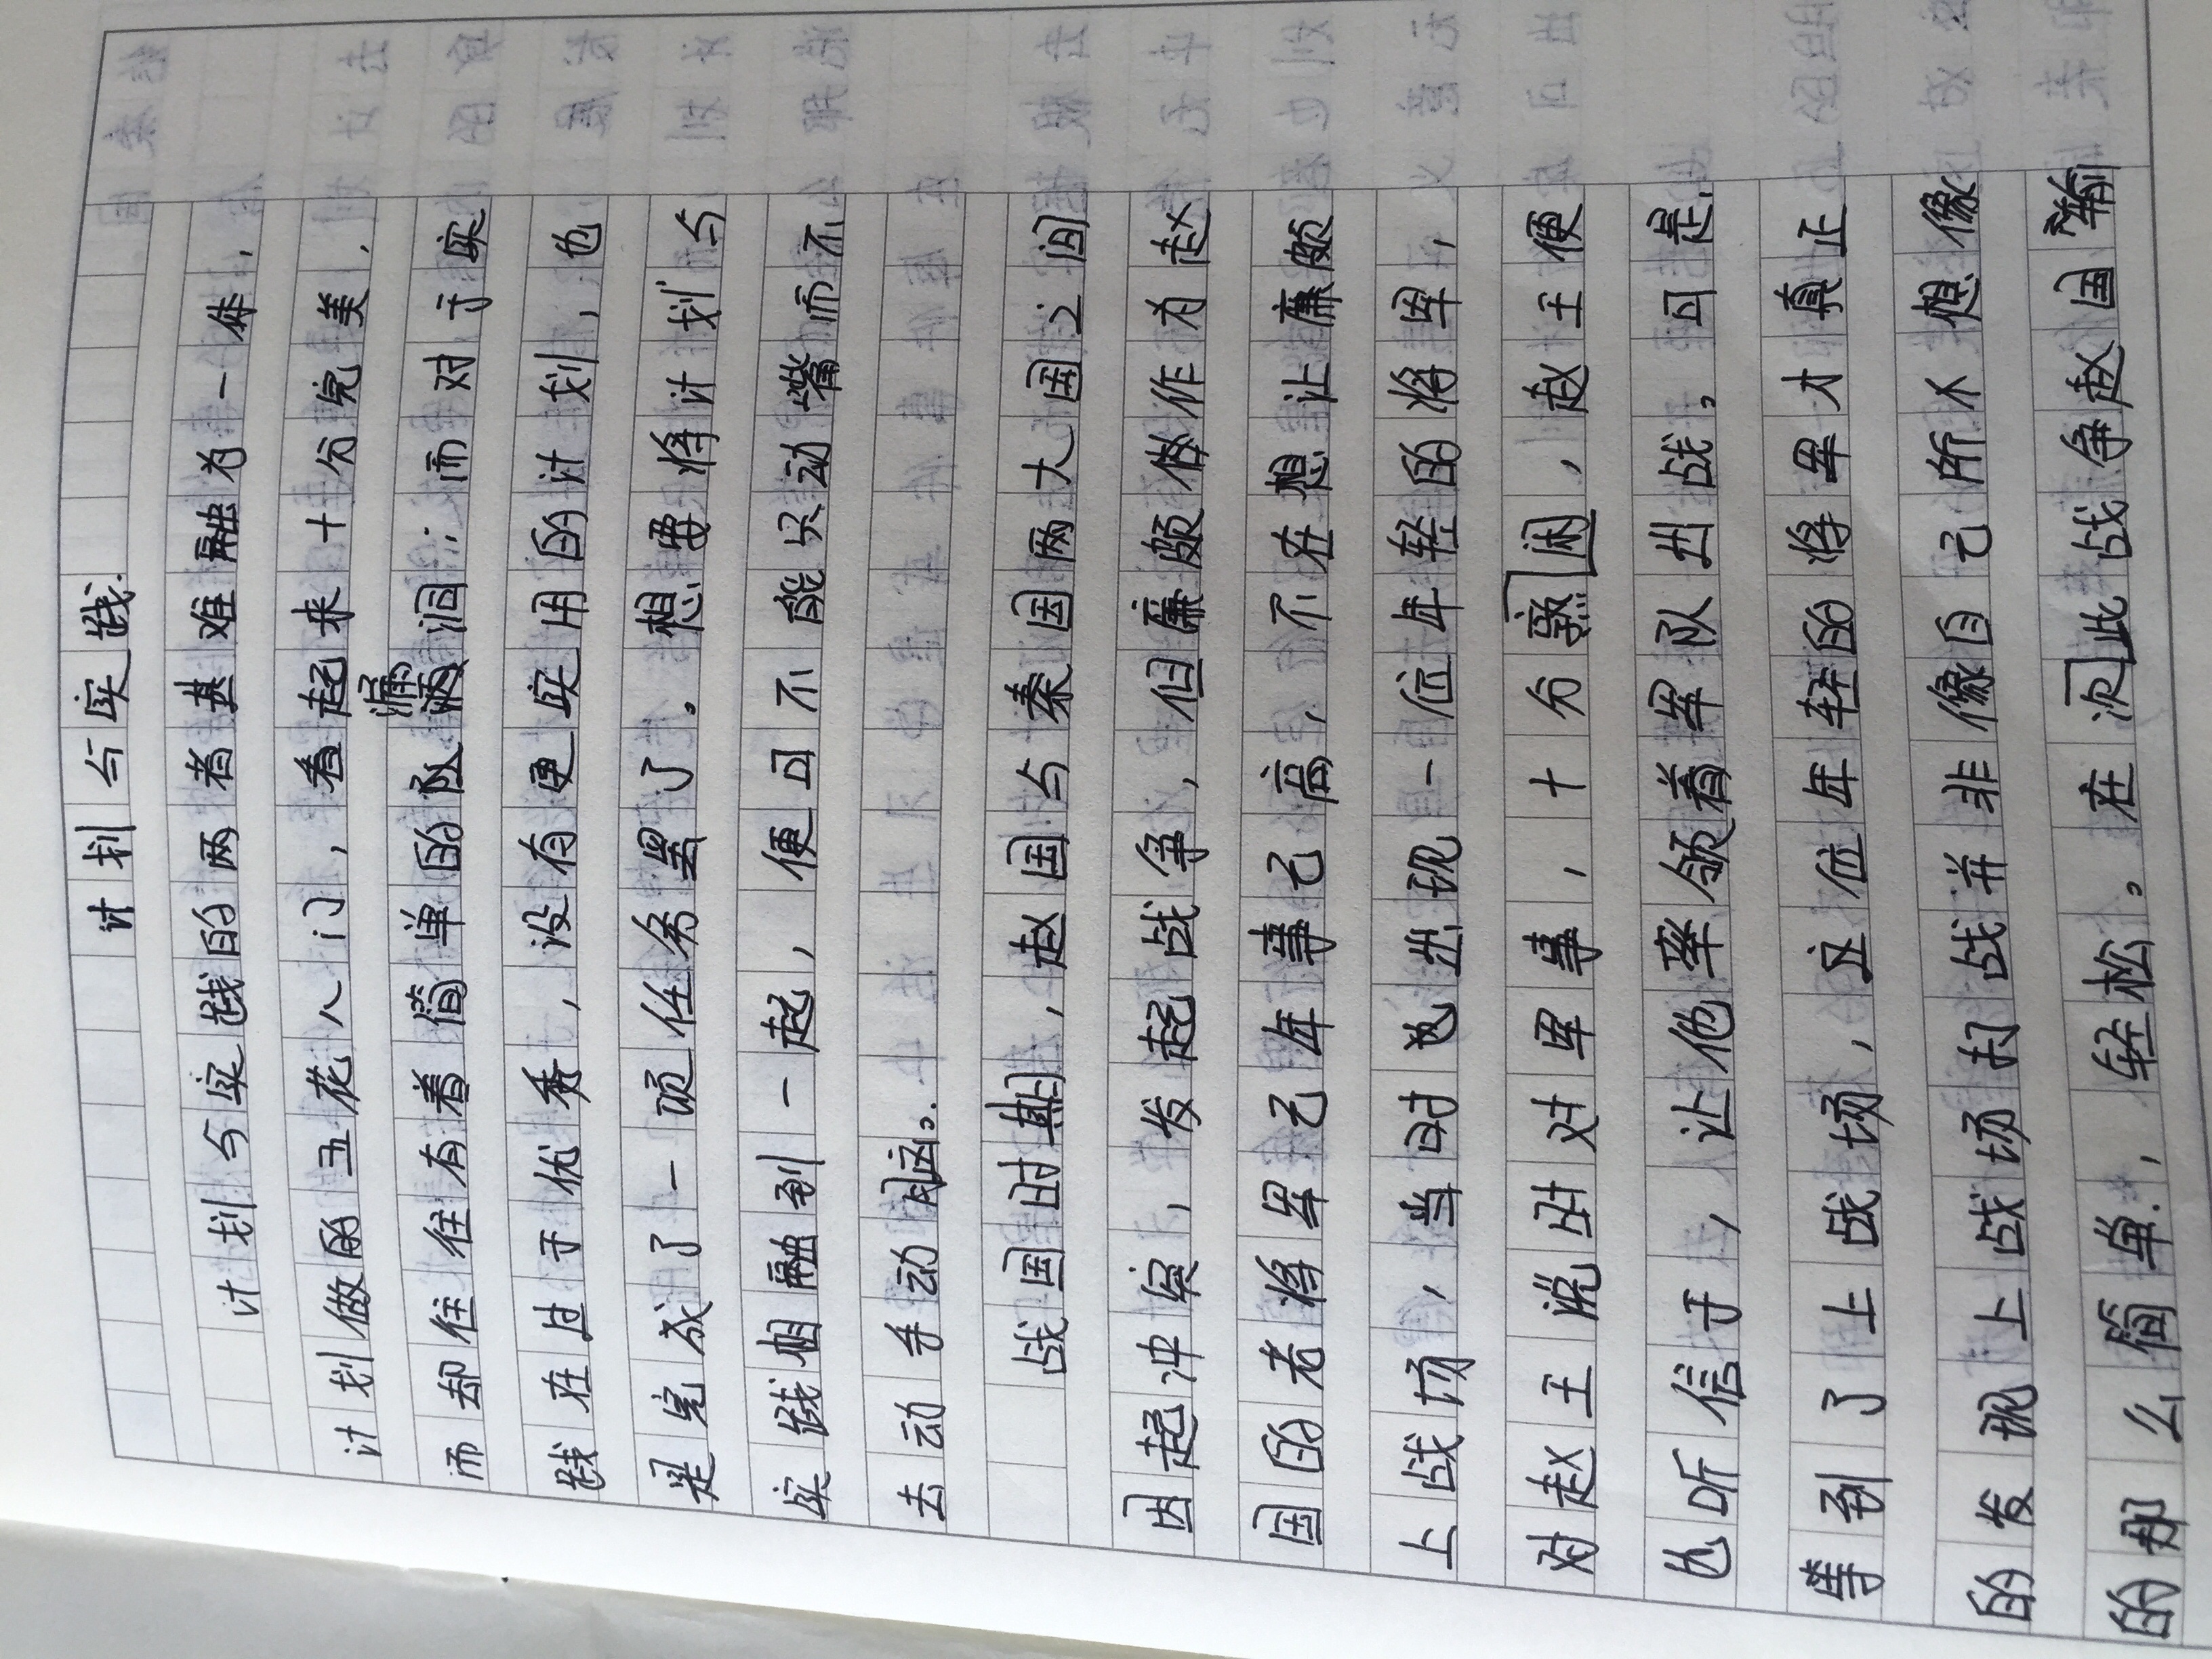 计划与实践.
计划与实践的两者甚难融为一体，
计划做的五花八门，看起来十分完美，
而却往往有着简单的漏洞；而对于实
践在过于优秀，没有更实用的计划，也
是完成了一项任务罢了。想要将计划与
实践相融到一起，便可不能只动嘴而不
去动手动脑。
战国时期，赵国与秦国两大国之间
因起冲突，发起战争，但廉颇做作为赵
国的老将军已年事已高，不在想让廉颇
上战场，当时也出现一位年轻的将军，
对赵王说出对军事，十分熟困，赵王便
也听信于，让他率领着军队出战。可是，
等到了上战场，这位年轻的将军才真正
的发现上战场打战并非像自己所不想像
的那么简单，轻松。在次此战争赵国输